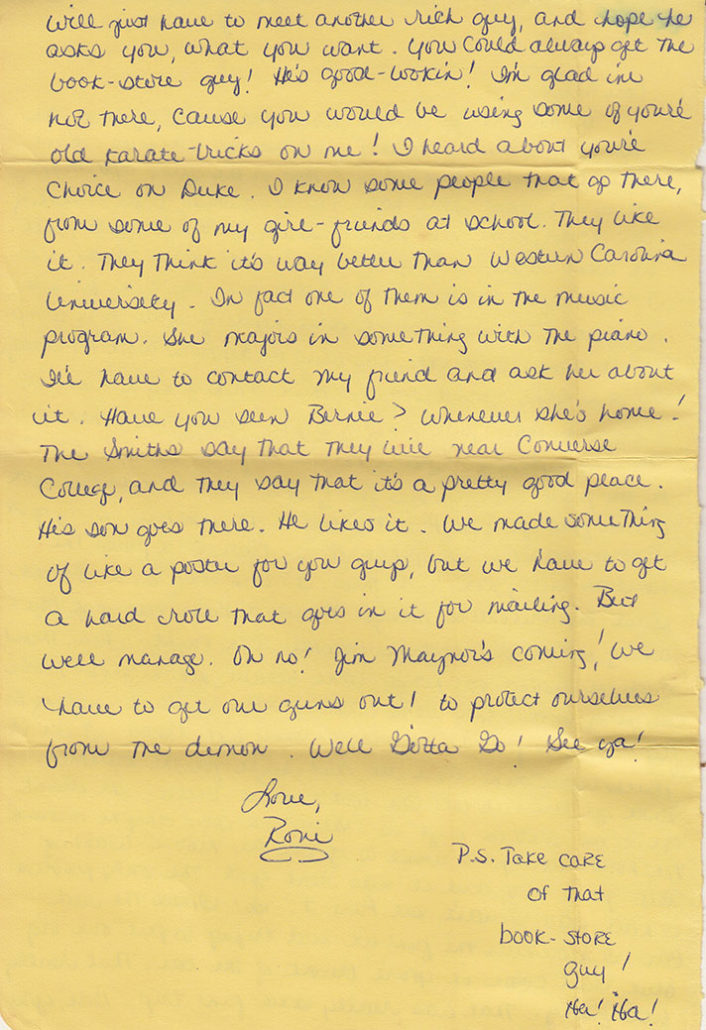 will just have to meet another rich guy, and hope he
asks you, what you want. You could always get the
book-store guy! He's good-lookin! I'm glad im
not there, cause you would be using some of you're
old karate-tricks on me! I heard about you're
choice on Duke. I know some people that go there,
from some of my girl-friends at school. They like
it. They think it's way better than Western Carolina
University. In fact one of them is in the music
program. She majors in something with the piano.
I'll have to contact my friend and ask her about
it. Have you seen Bernie? Whenever she's home!
The Smiths say that they live near Converse
College, and they say that it's a pretty good peace.
His son goes there. He likes it. We made something
of like a poster for you guys, but we have to get
a hard role that goes in it for mailing. But
well manage. Oh no! Jim Maynor's coming! We
have to get our guns out! to protect ourselves
from the demon. Well Gotta Go! See ya!
Love,
Roni
P.S. Take care
of that
book-store
guy!
Ha! Ha!